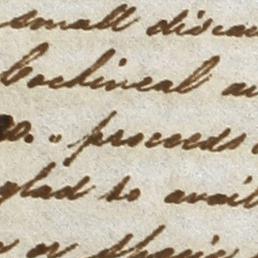 small discou
Cochineal au
30. " proceeds
glad to avail
or or their